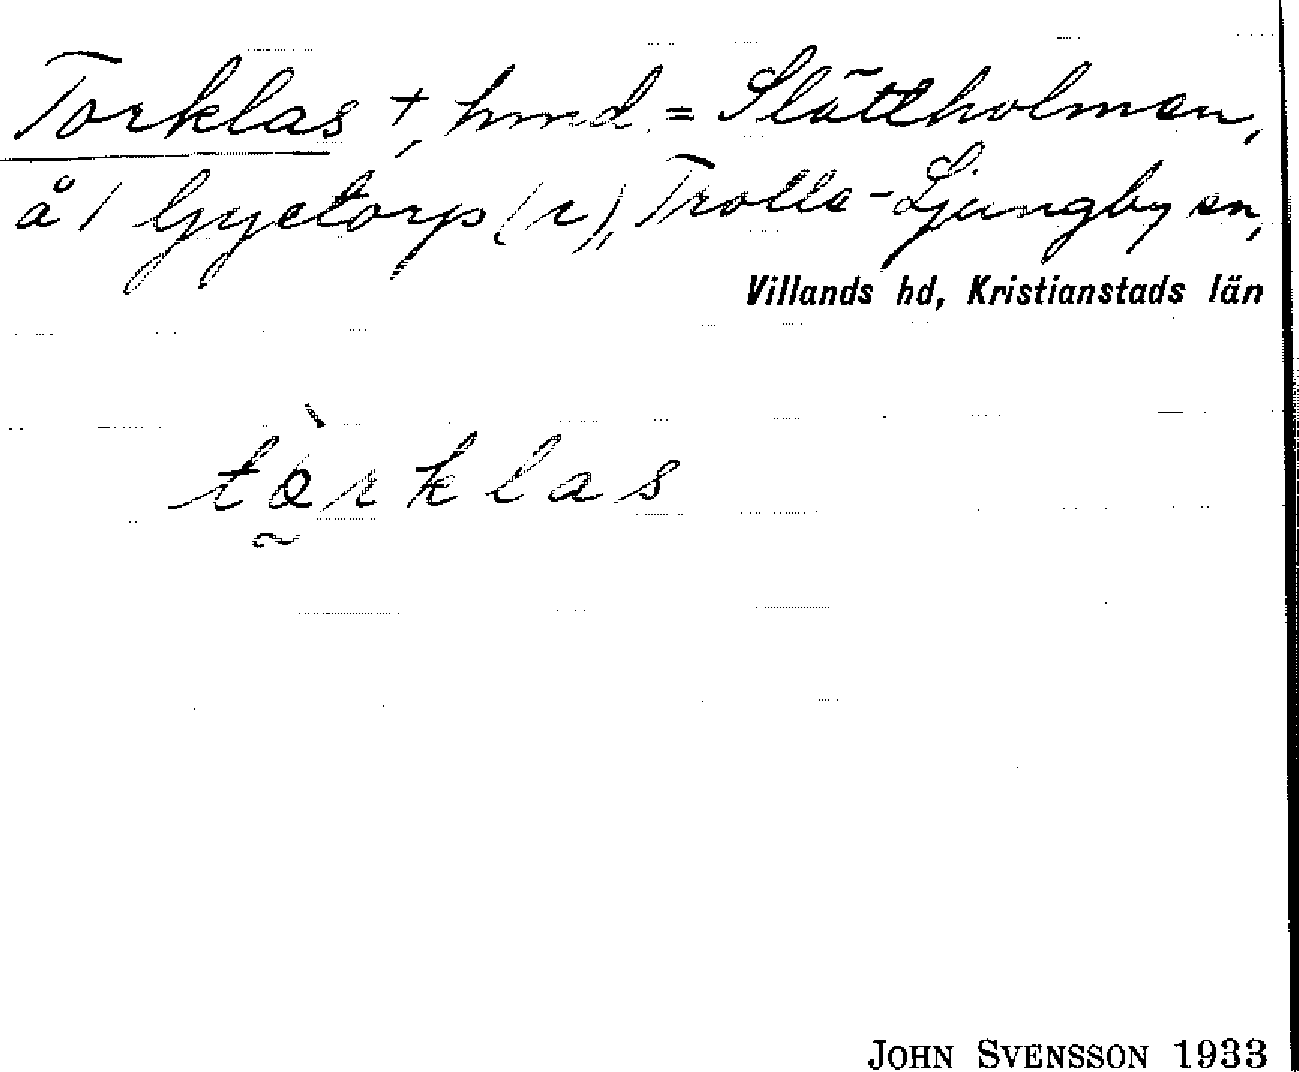 Torklas †, hmd. = Slättholmen,
å 1 Gyetorp (r), Trolle-Ljungby sn,
Villands hd, Kristianstads län
tòrklas
JOHN SVENSSON 1933